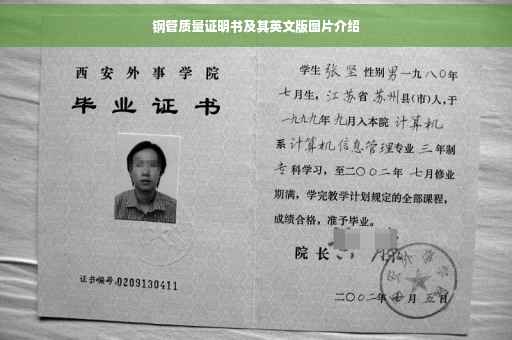 钢管质量证明书及其英文版图片介绍
西安外事学院
毕业证书
证书编号:0209130411
学生 张坚 性别 男 一九八〇年
七月生,江苏省苏州县(市)人,于
一九九九年九月入本院 计算机
系 计算机信息管理 专业 三 年制
专科学习,至二〇〇二年 七月修业
期满,学完教学计划规定的全部课程,
成绩合格,准予毕业。
院长
二〇〇二年 月五日